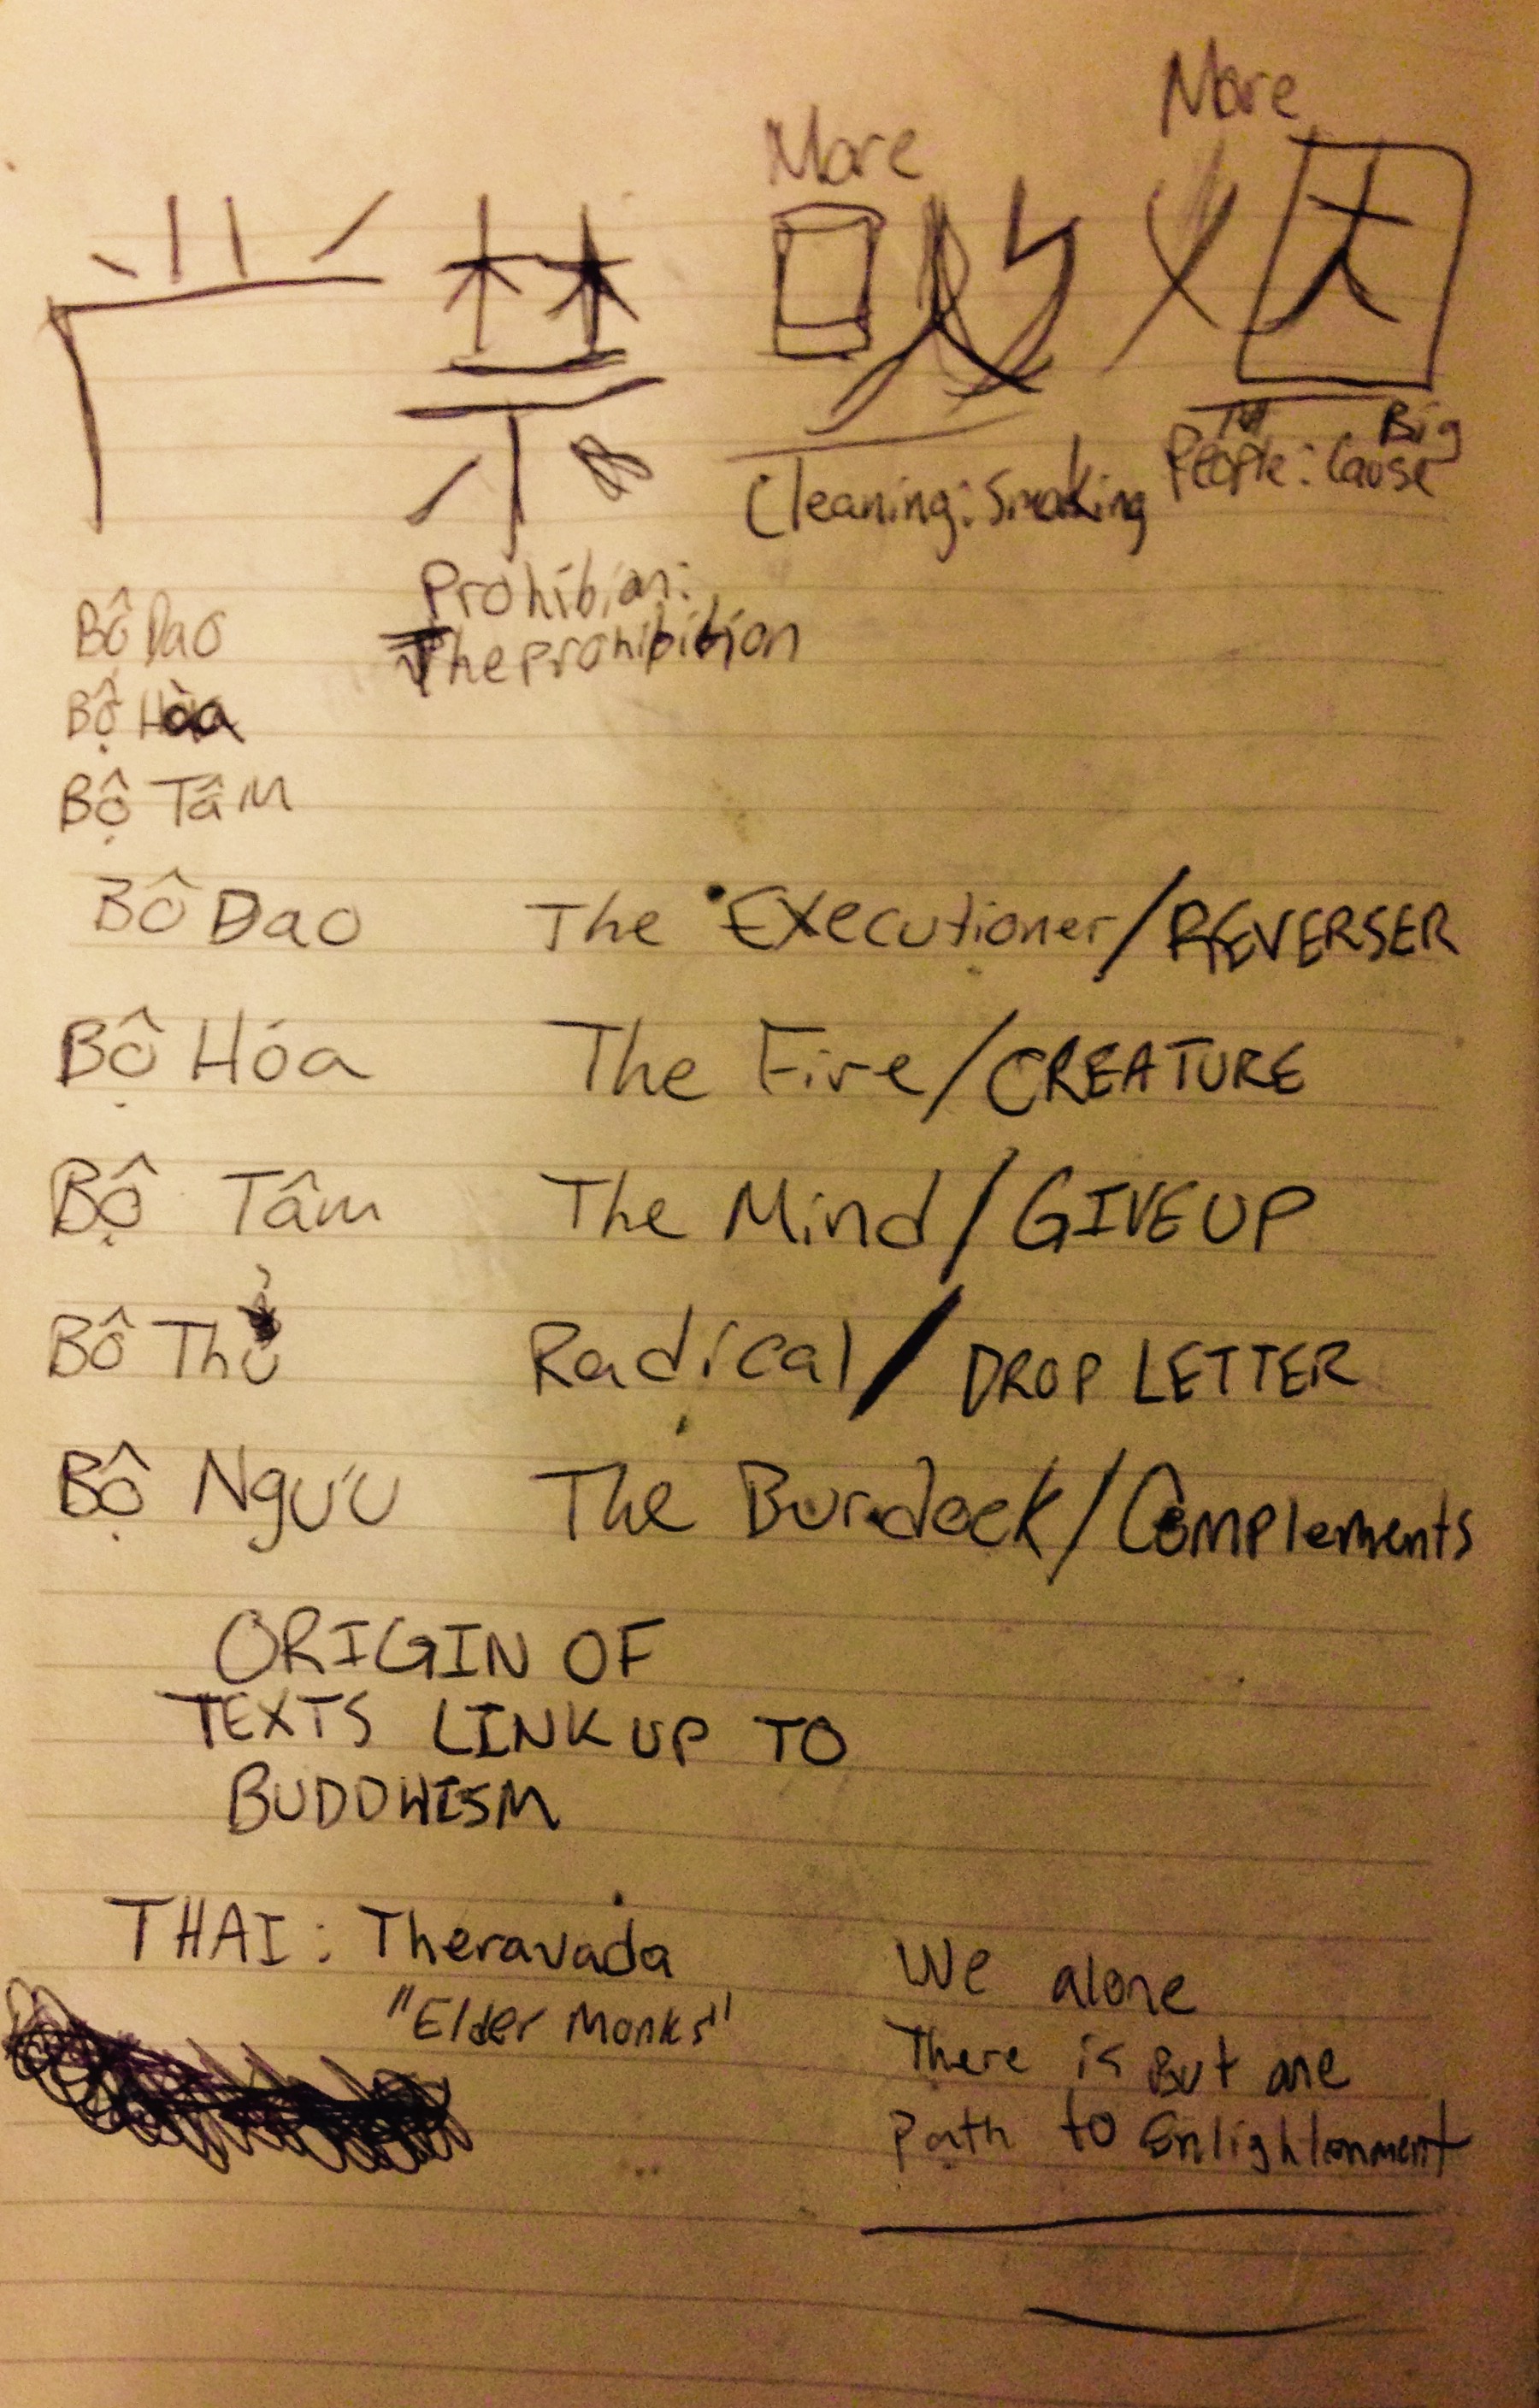 More More
严禁吸烟
Cleaning: Smoking
People: Cause
Big
Prohibian:
The prohibition
Bộ Dao
Bộ Hòa
Bộ Tâm
Bô Dao The Executioner/REVERSER
Bộ Hóa The Fire/CREATURE
Bộ Tâm The Mind/GIVE UP
Bô Thủ Radical/DROP LETTER
Bộ Ngưu The Burdock/Complements
ORIGIN OF
TEXTS LINK UP TO
BUDDHISM
THAI: Theravada
"Elder Monks"
We alone
There is But one
Path to Enlightenment